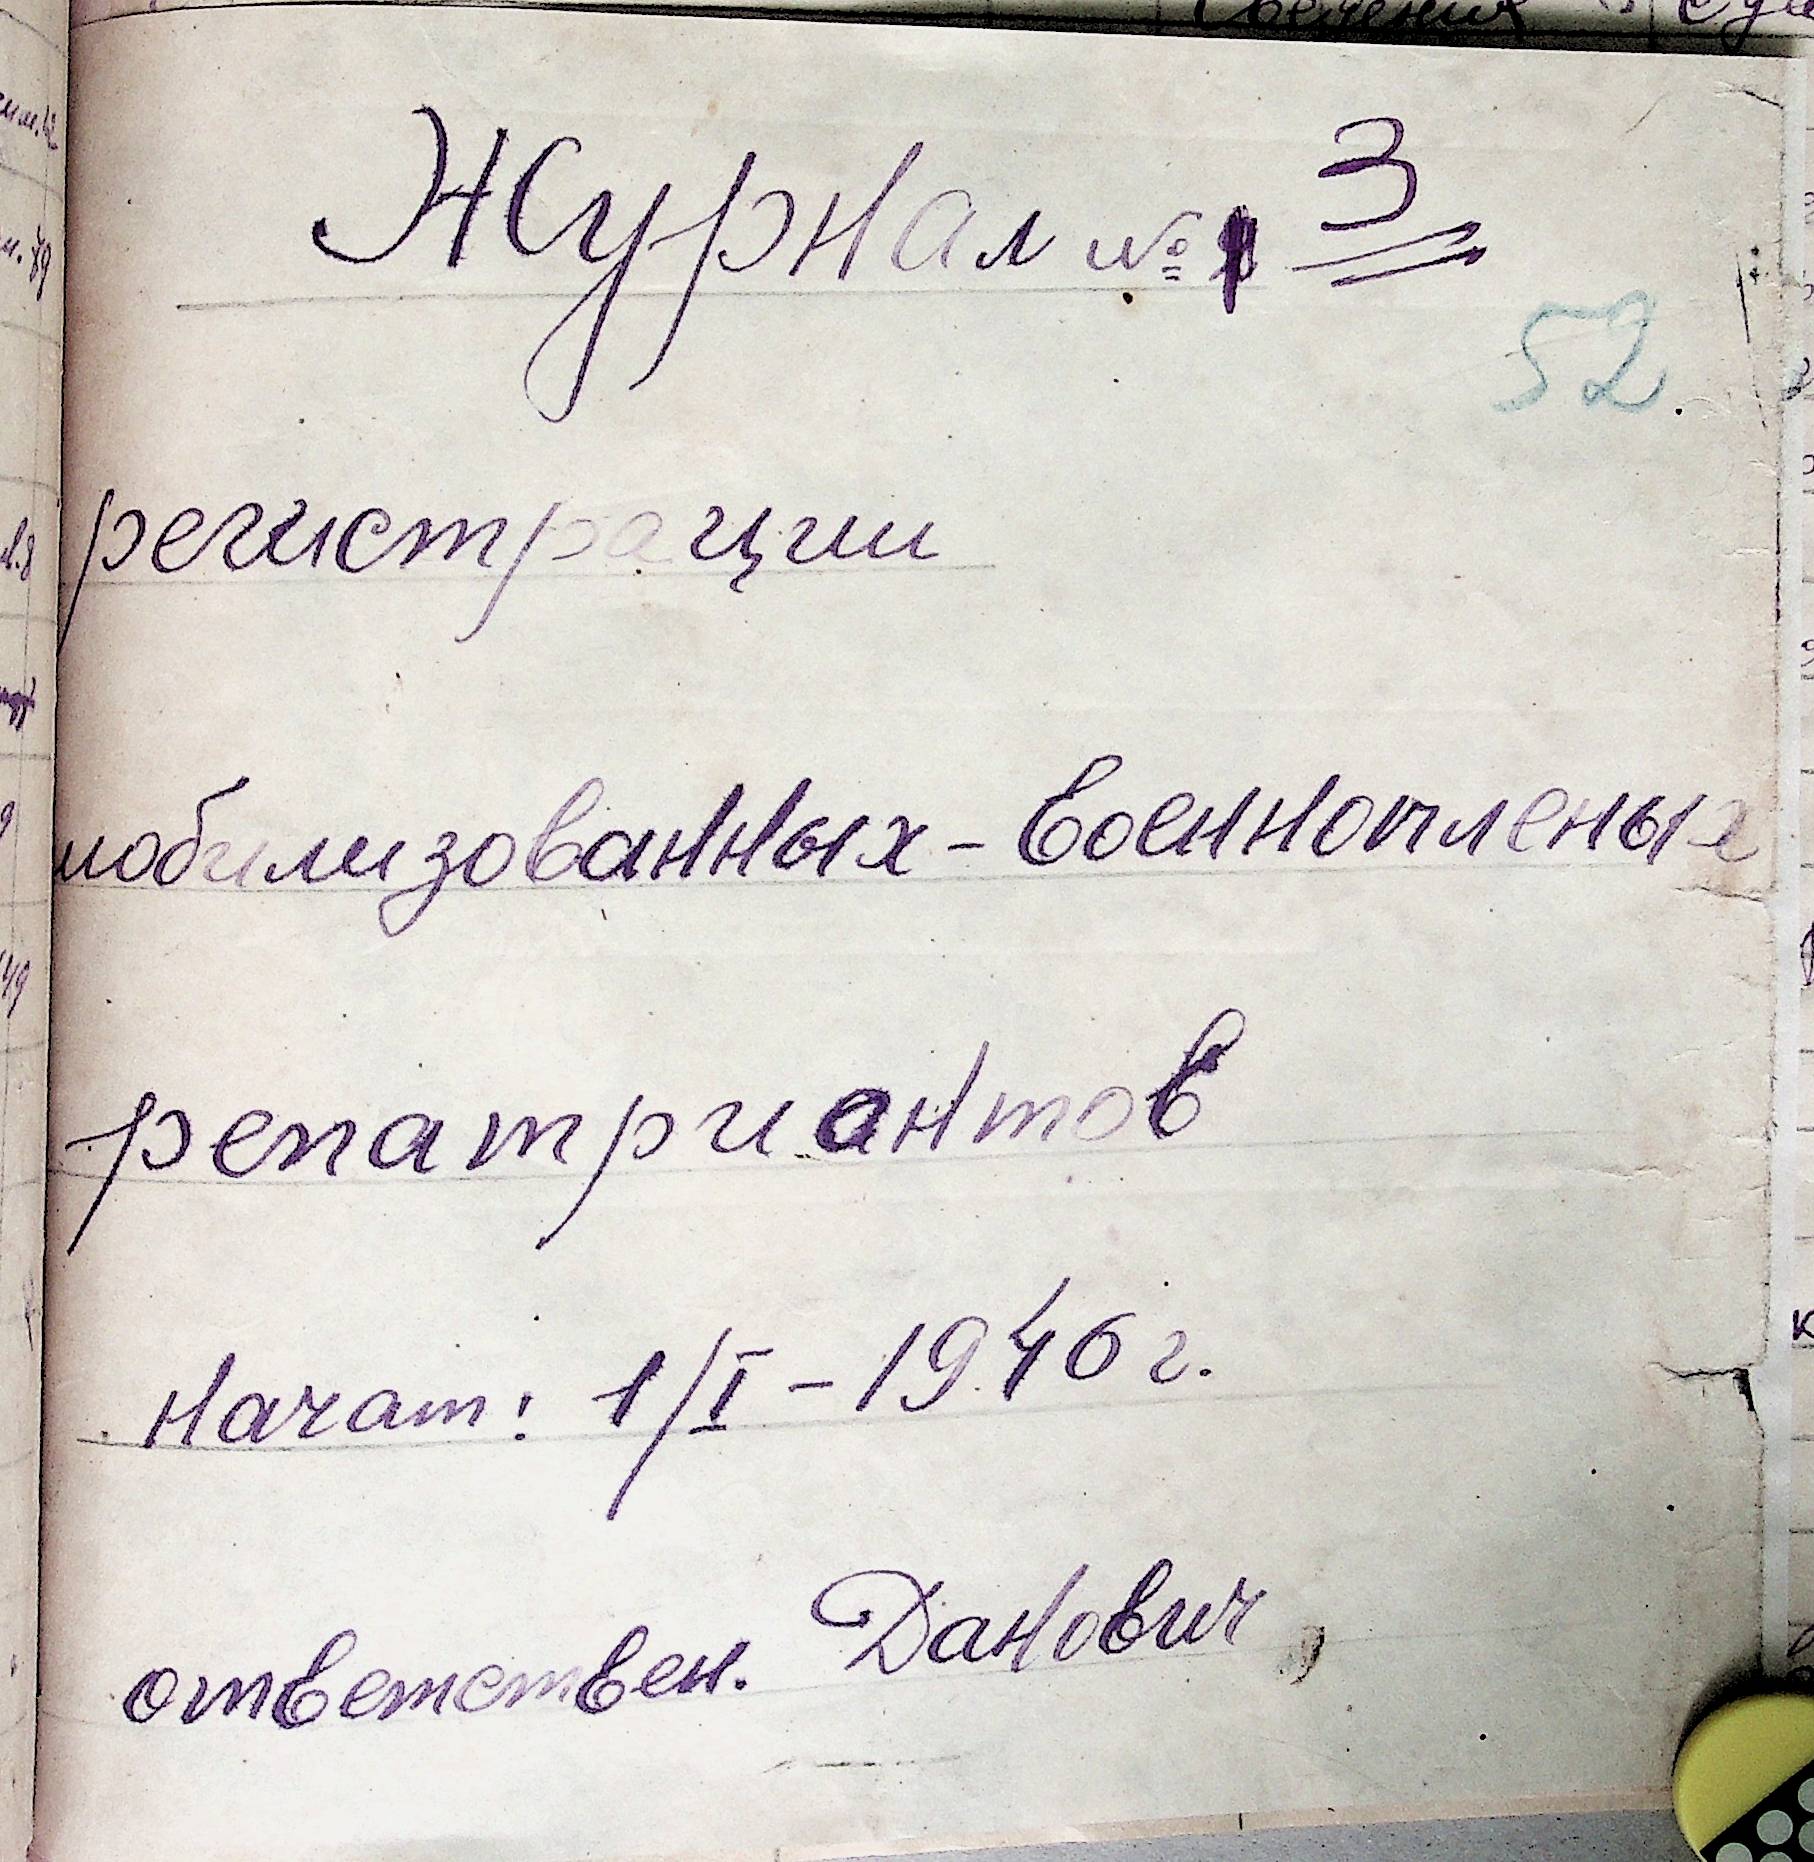 Журнал № 3
52.
регистрации
мобилизованных - военнопленых
репатриантов
Начат: 1/I - 1946 г.
ответствен. Данович